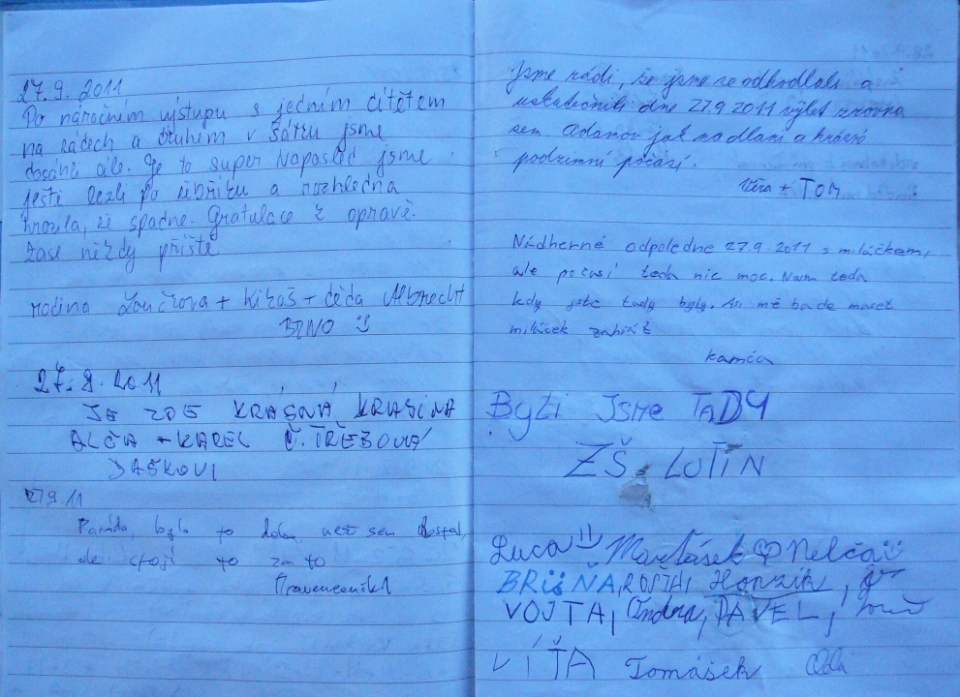 27.9.2011
Po náročném výstupu s jedním dítětem
na zádech a druhém v šátku jsme
dosáhli cíle. Je to super Naposled jsme
ještě lezli po žebříku a rozhledna
hrozila, že spadne. Gratulace k opravě.
Zase někdy příště
rodina + + děda Albrecht
BRNO
27.9.2011
JE ZDE KRÁSNÁ KRAJINA
ALČA + KAREL Č. TŘEBOVÁ
JAŠKOVI
27.9.11
Paráda, bylo to než sem dostal,
ale stojí to za to
Jsme rádi, že jsme se odhodlali a
uskutečnili dne 27.9 2011 výlet zrovna
sem Adamov jak na dlani a krásné
podzimní počasí.
Věra + TOM
Nádherné odpoledne 27.9.2011 s miláčkem,
ale počasí teda nic moc. teda
když jste tady byly. mě bude muset
miláček zahřát
kamča
Byli JSME TADY
ZŠ LUTÍN
Luca Martásek Nelča
BRůŇA, ROSŤA, Honzík,
VOJTA, Ondra, PAVEL,
VÍŤA Tomášek